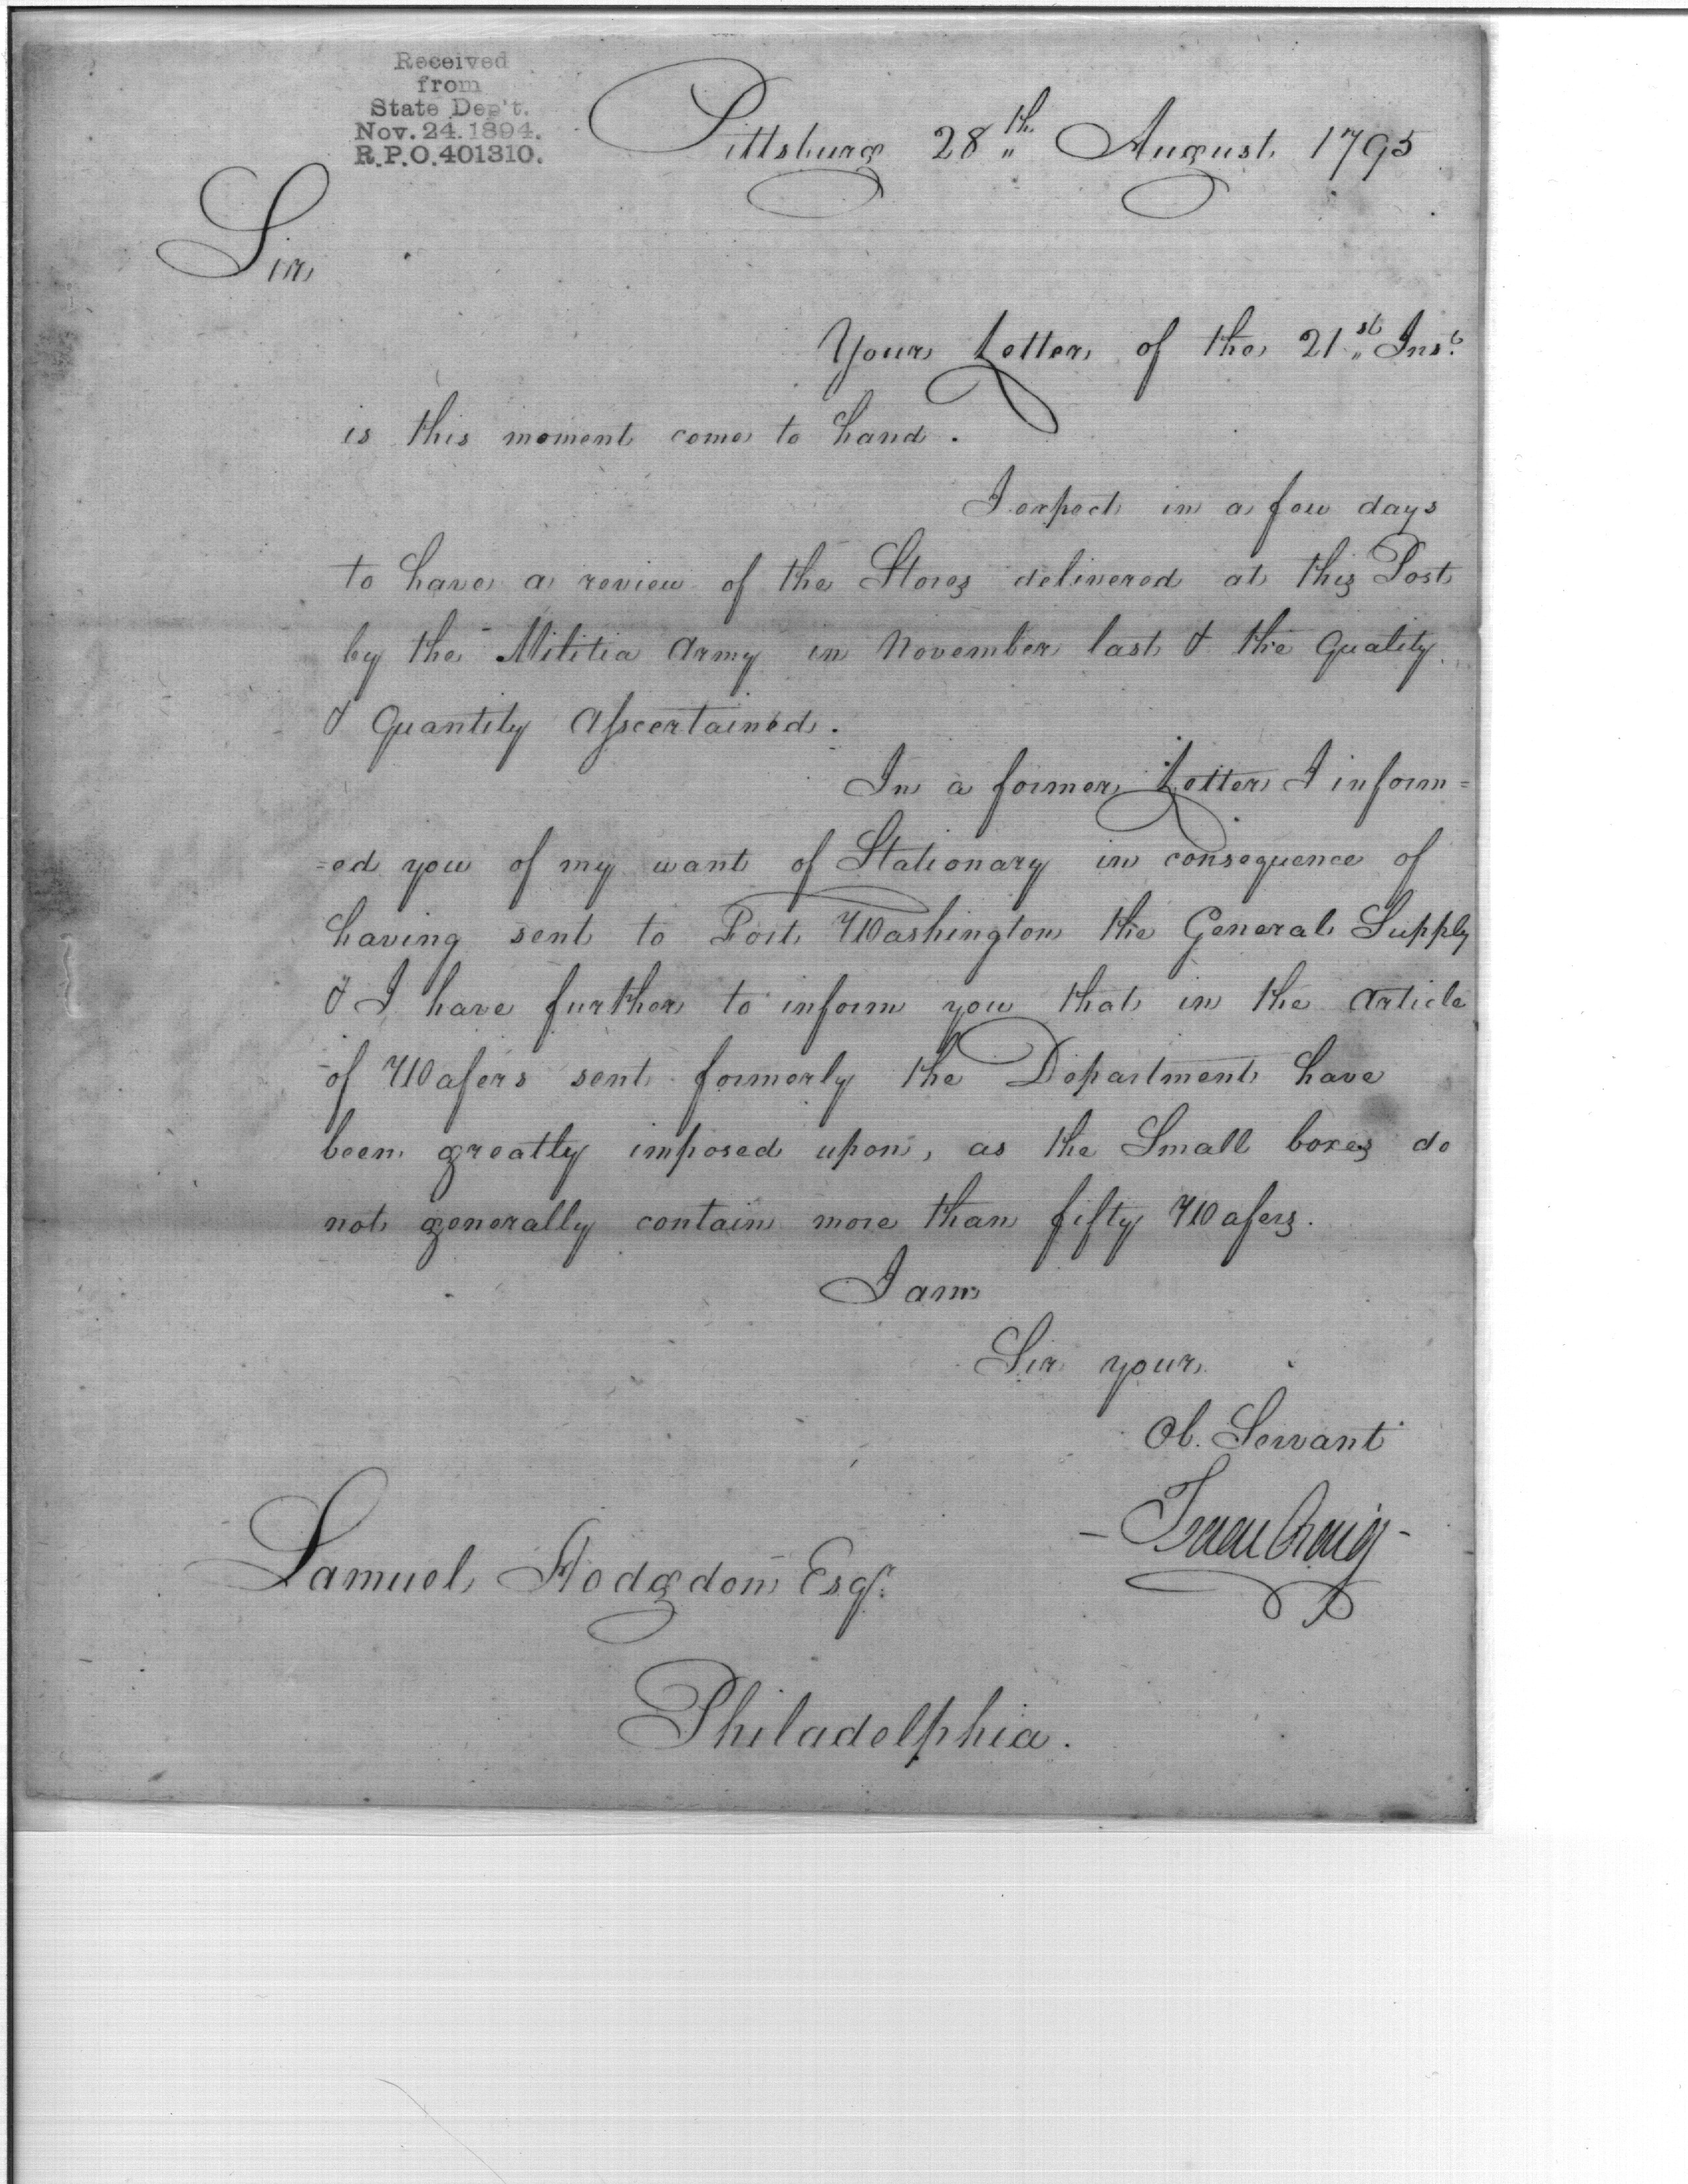 Received
from
State Dep't.
Nov. 24. 1894.
R.P.O. 401310.
Pittsburg 28th August 1795
Sir
Your Letter of the 21st Inst.
is this moment come to hand.
I expect in a few days
to have a review of the Stores delivered at this Post
by the Militia Army in November last & the Quality
& Quantity Ascertained.
In a former Letter I inform=
=ed you of my want of Stationary in consequence of
having sent to Fort Washington the General Supply
& I have further to inform you that in the Article
of Wafers sent formerly the Department have
been greatly imposed upon, as the Small boxes do
not generally contain more than fifty Wafers.
I am
Sir your
Ob. Servant
Isaac Craig
Samuel Hodgdon Esqr.
Philadelphia.